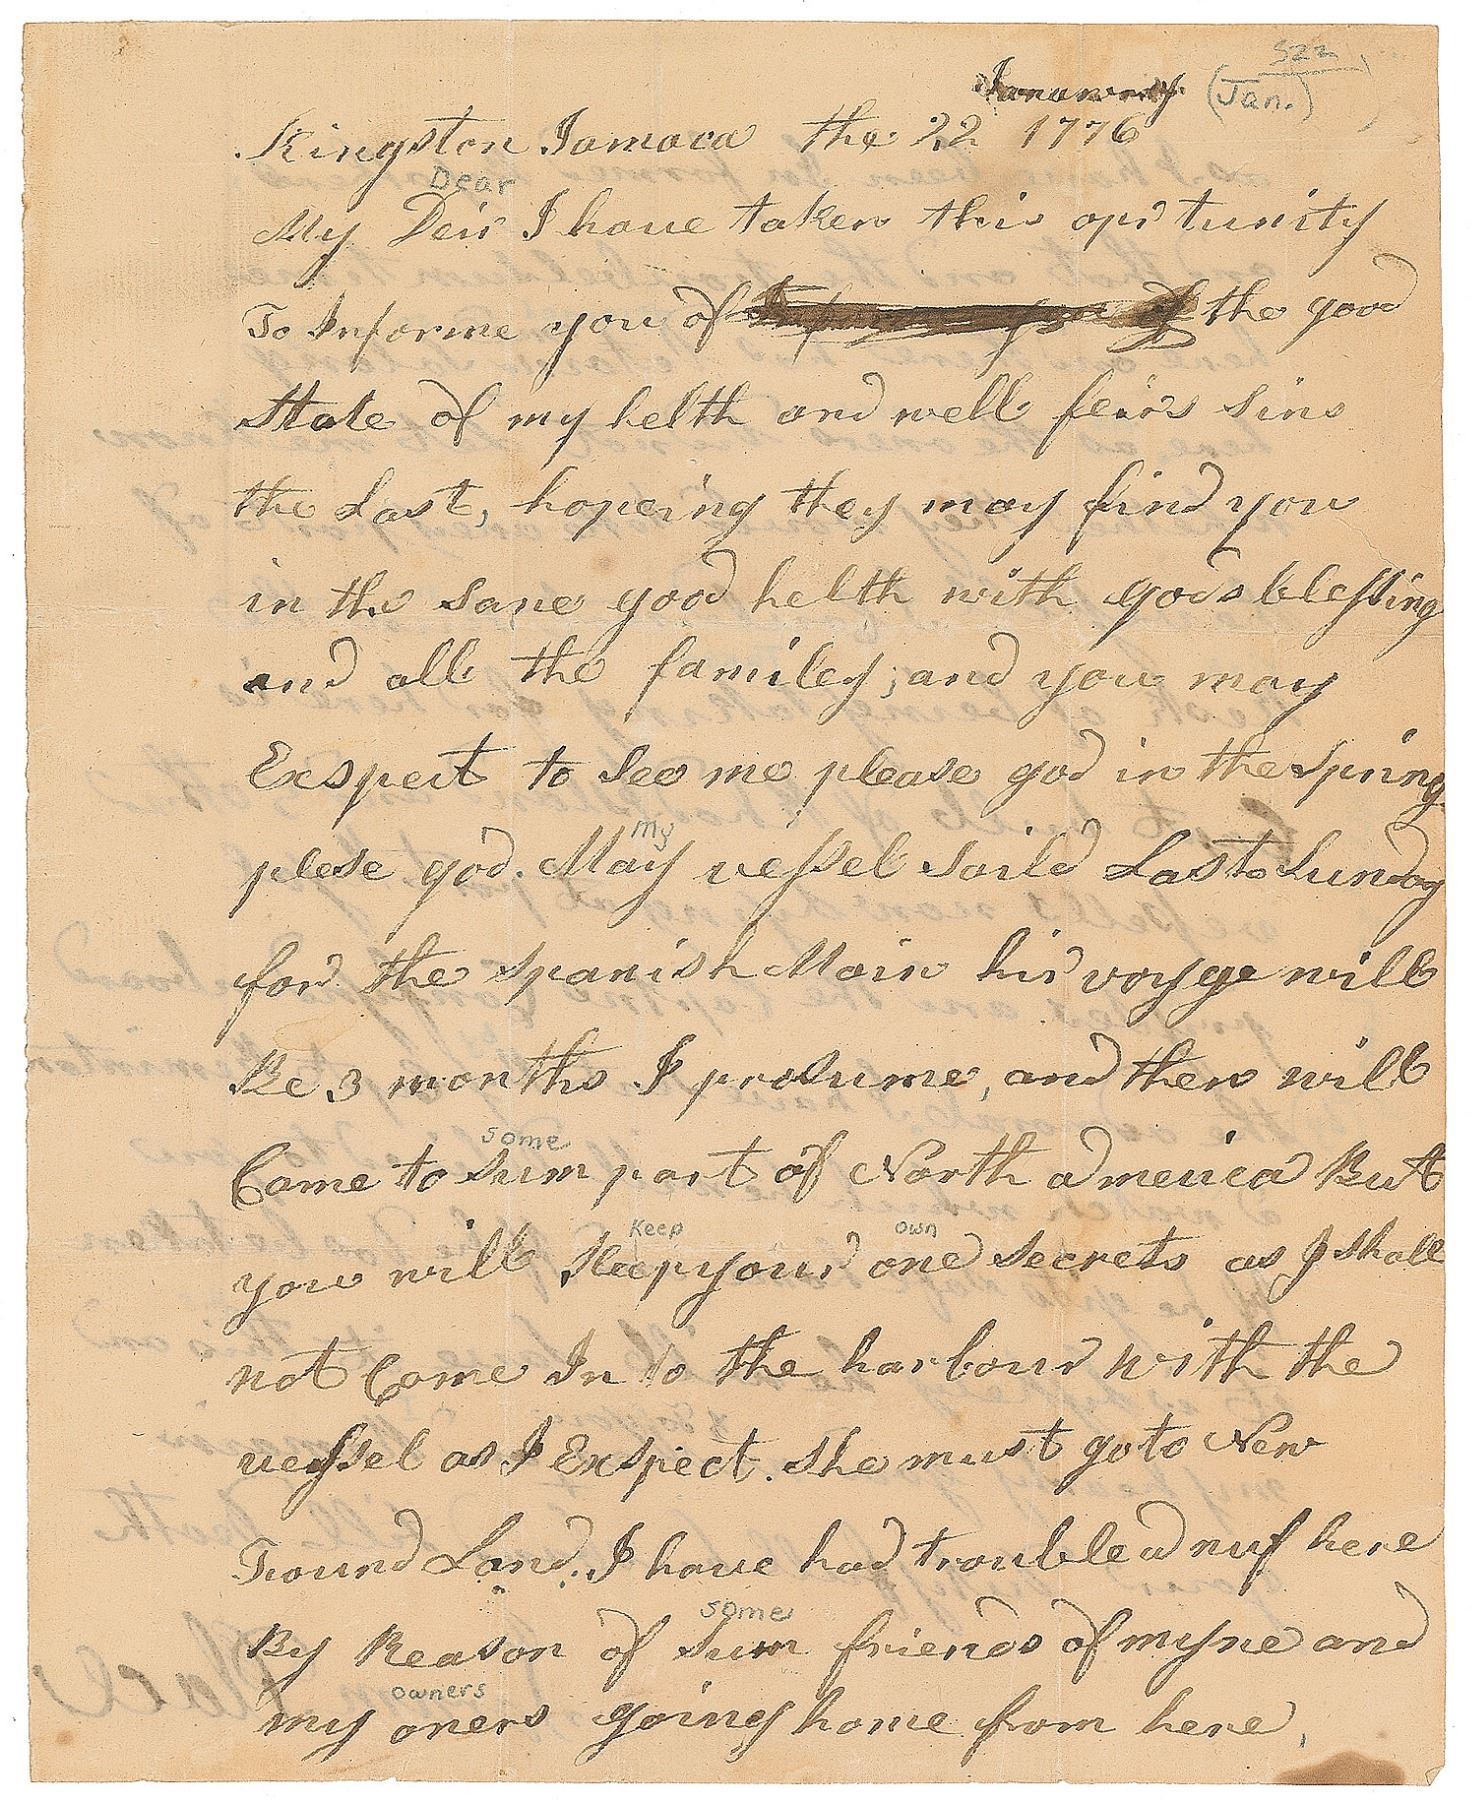 522
Januwrey (Jan.)
Kingston Jamaca the 22 1776
Dear
My Deir I have taken this opr tunity
To Informe you of the good
State of my helth and well feirs Sins
the Last, hopeing they may find you
in the Sane good helth with gods blessing
and all the familey; and you may
Exspect to See me please god in the Spring
my
plese god. May vessel Saild Last Sunday
for the Spanish Main his voyge will
Be 3 months I presume, and then will
some
Come to Sum part of North america But
Keep own
you will Keep your one Secrets as I Shall
not Come In to the harbour with the
vessel as I Exspect. She must go to New
Found Land. I have had trouble a nuf here
some
By Reason of Sum friends of myne and
owners
my oners going home from here,